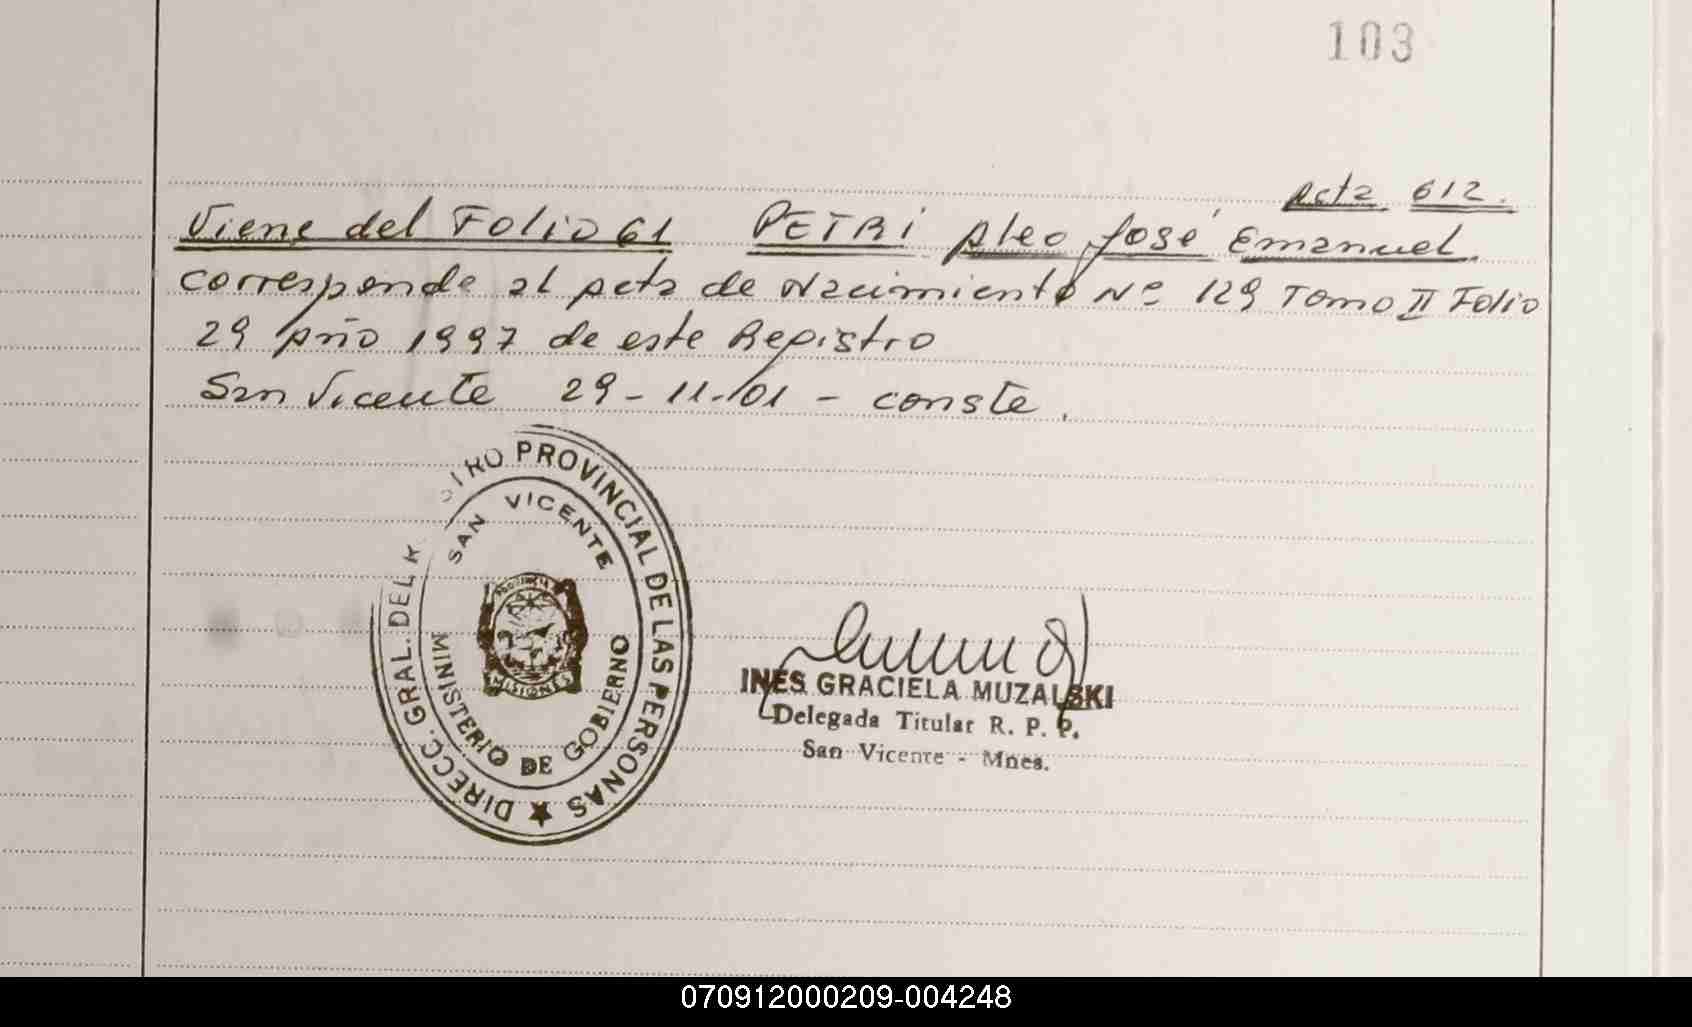 103
Acta 612.
Viene del Folio 61 PETRI Aleo José Emanuel.
corresponde al acta de Nacimiento Nº 129 Tomo II Folio
29 Año 1997 de este Registro
San Vicente 29-11-01 - conste.
DIRECC. GRAL. DEL R STRO PROVINCIAL DE LAS PERSONAS
SAN VICENTE
PROVINCIA
MISIONES
MINISTERIO DE GOBIERNO
INES GRACIELA MUZALSKI
Delegada Titular R. P. P.
San Vicente - Mnes.
070912000209-004248